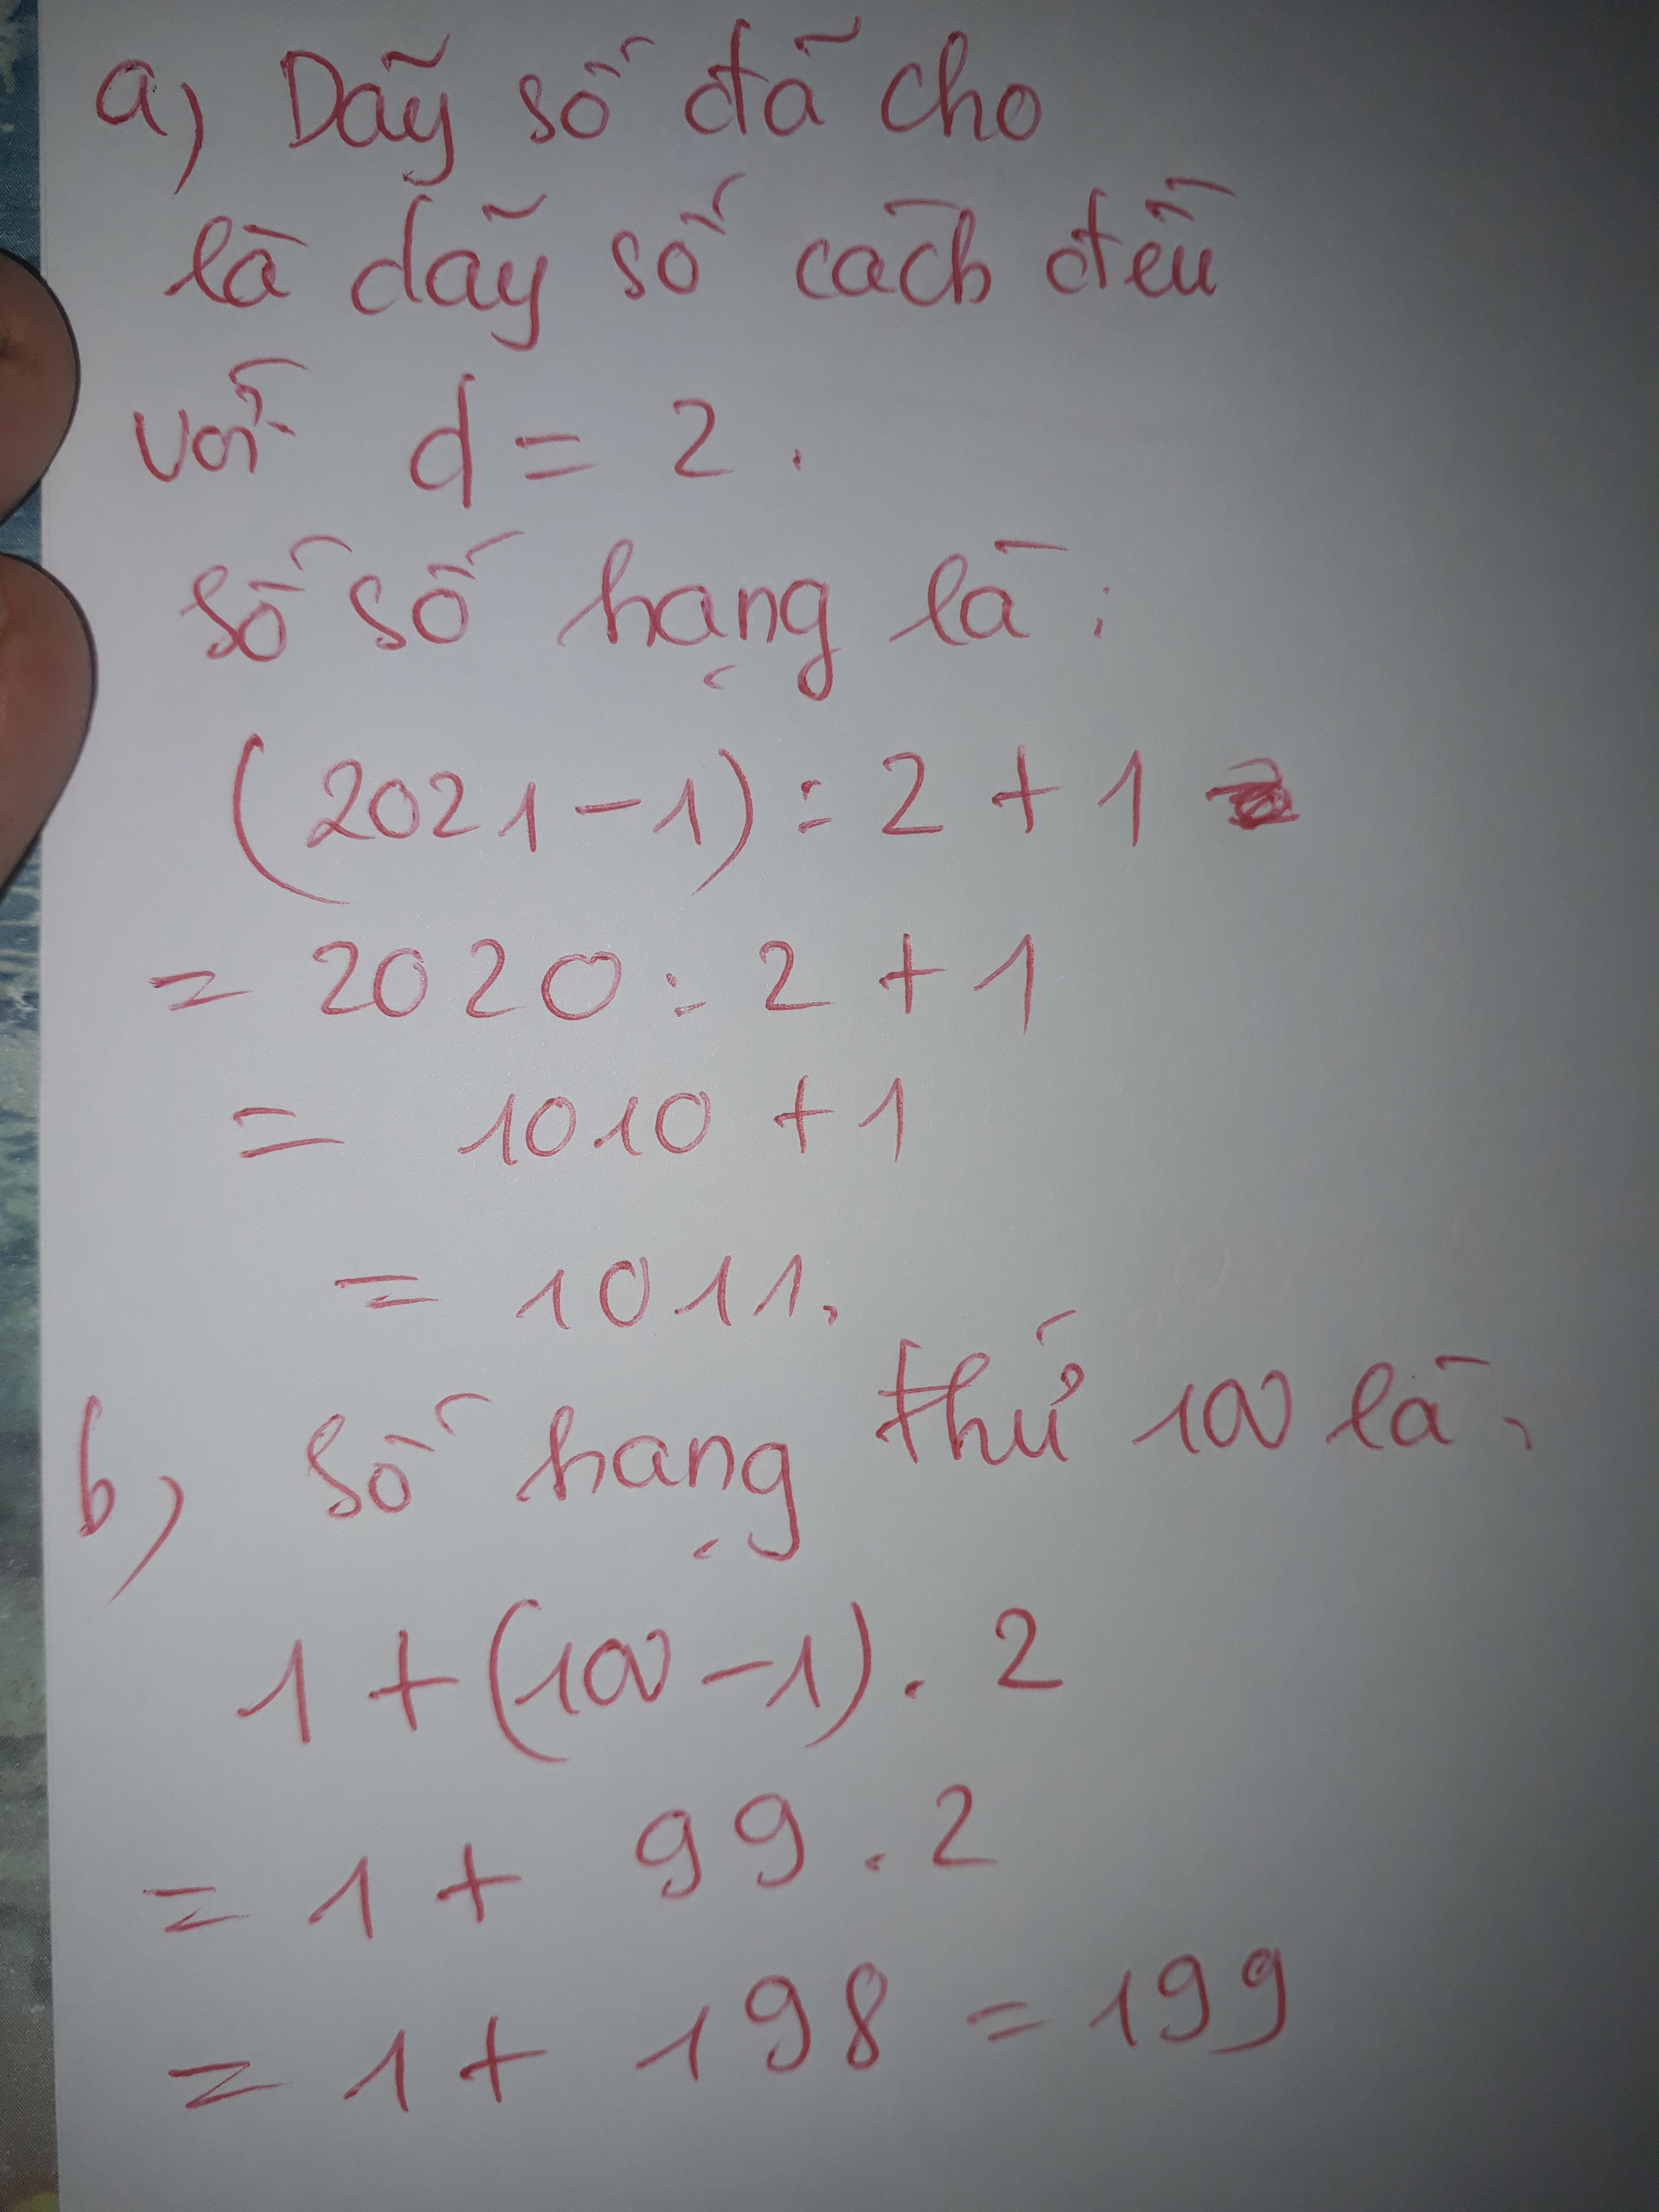 a, Dãy số đã cho
là dãy số cách đều
với d = 2.
Số số hạng là:
(2021-1):2+1
= 2020:2+1
= 1010+1
= 1011.
b, Số hạng thứ 100 là.
1+(100-1).2
= 1+99.2
= 1+198=199